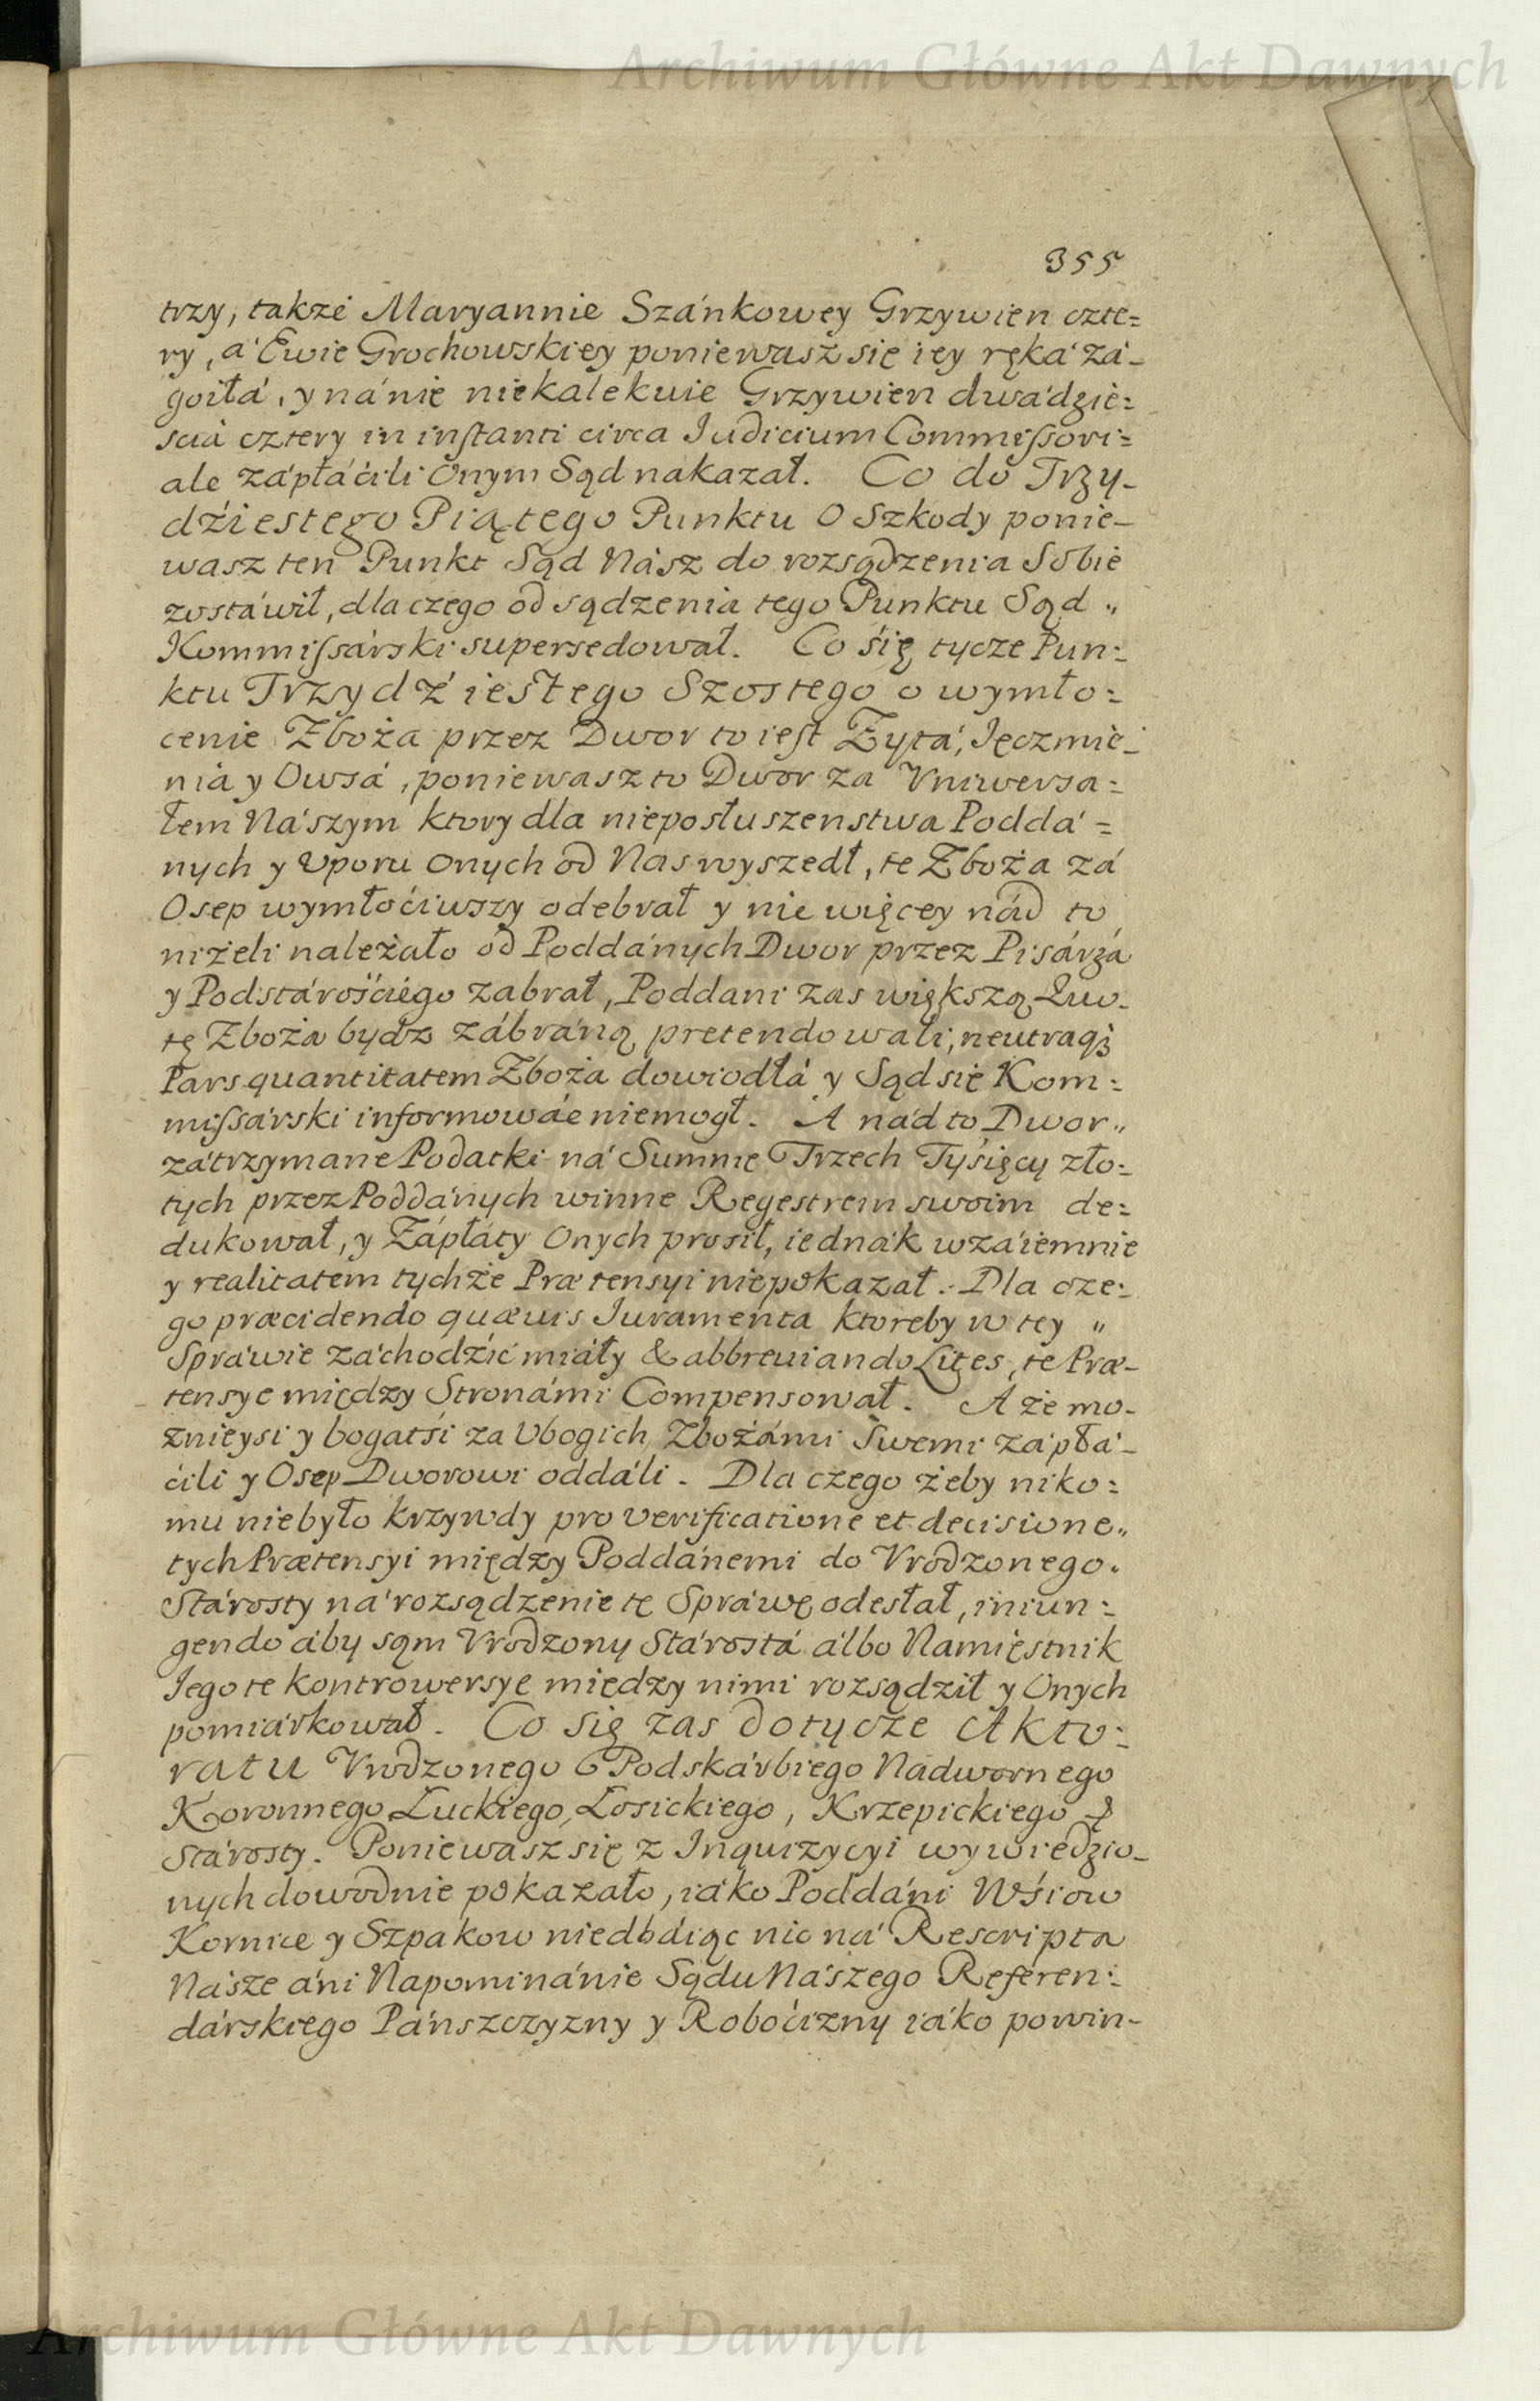 Archiwum Główne Akt Dawnych
355
trzy, także Maryannie Szánkowey Grzywien czte=
ry, á Ewie Grochowskiey poniewasz się iey ręká zá-
goiłá, y ná nię niekalekuie Grzywien dwádzie=
scia cztery in instanti circa Iudicium Commissori=
ale zápłáćili Onym Sąd nakazał. Co do Trzy-
dźiestego Piątego Punktu O Szkody ponie-
wasz ten Punkt Sąd Nász do rozsądzenia Sobie
zostáwił, dla czego od sądzenia tego Punktu Sąd „
Kommissárski supersedował. Co śię tycze Pun=
ktu Trzydźiestego Szostego o wymło=
cenie Zboża przez Dwor to iest Żytá, Jęczmie=
nia y Owsá, poniewasz to Dwor za Vniwersa=
łem Nászym ktory dla nieposłuszenstwa Poddá=
nych y Vporu Onych od Nas wyszedł, te Zboża zá
Osep wymłoćiwszy odebrał y nie więcey nád to
niżeli należało od Poddánych Dwor przez Pisárza
y Podstárośćiego zabrał, Poddani zas większą Quo-
tę Zboża bydz zábráną pretendowali, neutraqȝ
Pars quantitatem Zboża dowiodłá y Sąd się Kom=
missarski informowáć niemogł. A nád to Dwor „
zátrzymane Podatki ná Summę Trzech Tyśięcy zło=
tych przez Poddánych winne Regestrem swoim de=
dukował, y Zápłáty Onych prosił, iednák wzáiemnie
y realitatem tychże Prætensyi niepokazał. Dla cze=
go præcidendo quævis Iuramenta ktoreby w tey „
Spráwie záchodźić miáły & abbreviando Lites, te Præ-
tensye między Stronámi Compensował. A że mo-
znieysi y bogatśi za Vbogich Zbożámi Swemi zápłá-
ćili y Osep Dworowi oddáli. Dla czego żeby niko=
mu niebyło krzywdy pro verificatione et decisione „
tych Prætensyi między Poddánemi do Vrodzonego „
Stárosty ná rozsądzenie tę Spráwę odesłał, iniun=
gendo áby sąm Vrodzony Stárostá álbo Namięstnik
Jego te kontrowersye między nimi rozsądził y Onych
pomiárkował. Co się zas dotycze Akto=
ratu Vrodzonego Podskárbiego Nadwornego
Koronnego, Łuckiego, Łosickiego, Krzepickiego &
Stárosty. Poniewasz się z Inquizycyi wywiedzio-
nych dowodnie pokazało, iáko Poddáni Wśiow
Kornice y Szpakow niedbáiąc nic ná Rescripta
Násze áni Napominánie Sądu Nászego Referen=
dárskiego Páńszczyzny y Roboćizny iáko powin-
Archiwum Główne Akt Dawnych